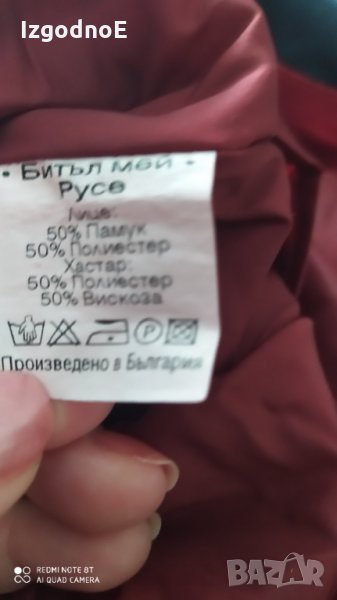 IzgodnoE
• Битъл мей •
Русе
Лице:
50% Памук
50% Полиестер
Хастар:
50% Полиестер
50% Вискоза
P
Произведено в България
REDMI NOTE 8T
AI QUAD CAMERA
BAZAR